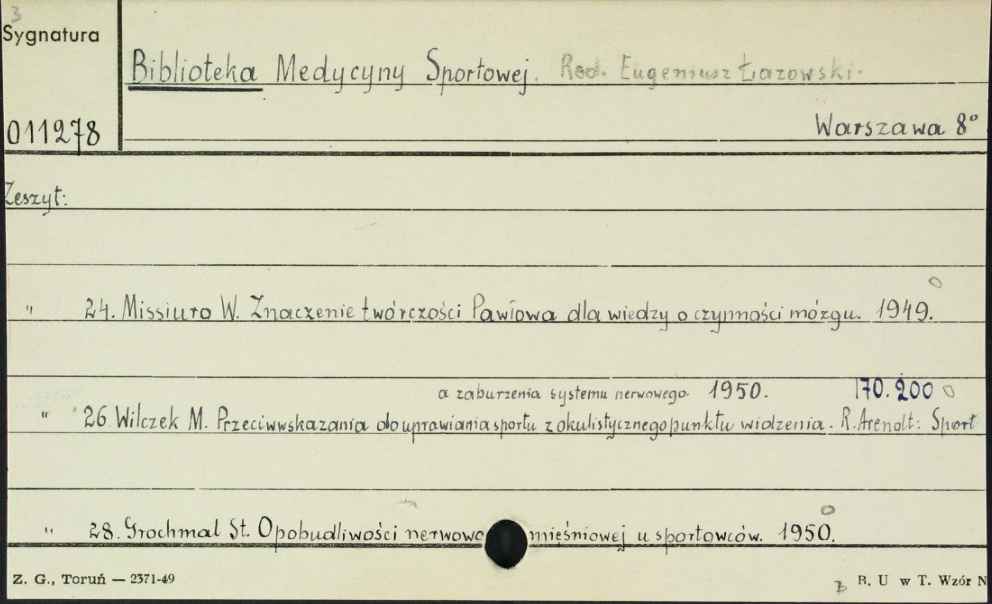 3
Sygnatura
Biblioteka Medycyny Sportowej. Red. Eugeniusz Łazowski.
011278
Warszawa 8°
Zeszyt:
" 24. Missiuro W. Znaczenie twórczości Pawłowa dla wiedzy o czynności mózgu. 1949.
a zaburzenia systemu nerwowego. 1950. 170.200
" 26 Wilczek M. Przeciwwskazania do uprawiania sportu z okulistycznego punktu widzenia. R. Arendt: Sport
" 28. Grochmal St. O pobudliwości nerwowo mięśniowej u sportowców. 1950.
Z. G., Toruń — 2371-49
B. U w T. Wzór N